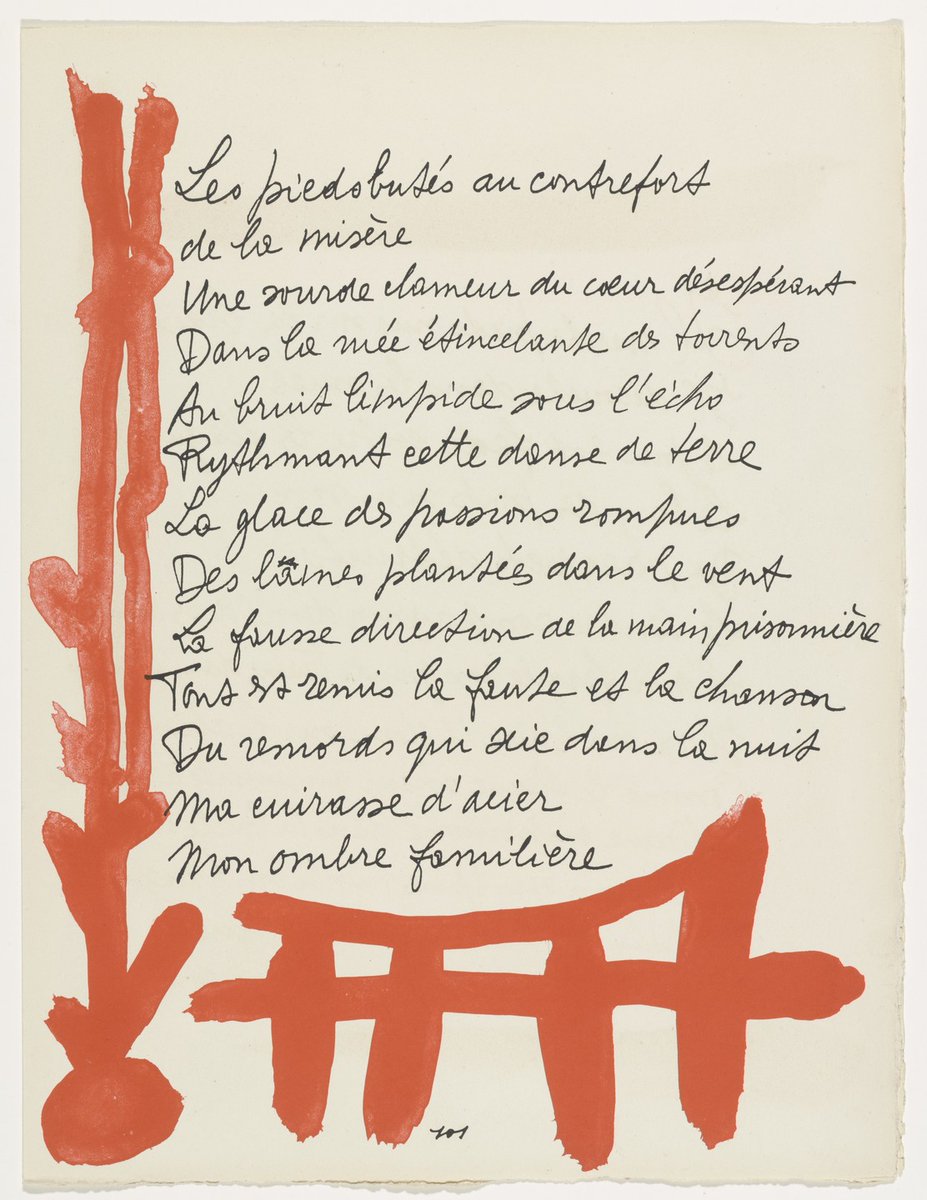 Les pieds butés au contrefort
de la misère
Une sourde clameur du cœur désespérant
Dans la nuée étincelante des torrents
Au bruit limpide sous l'écho
Rythmant cette danse de terre
La glace des passions rompues
Des lames plantées dans le vent
La fausse direction de la main prisonnière
Tout est remis la faute et la chanson
Du remords qui scie dans la nuit
Ma cuirasse d'acier
Mon ombre familière
101